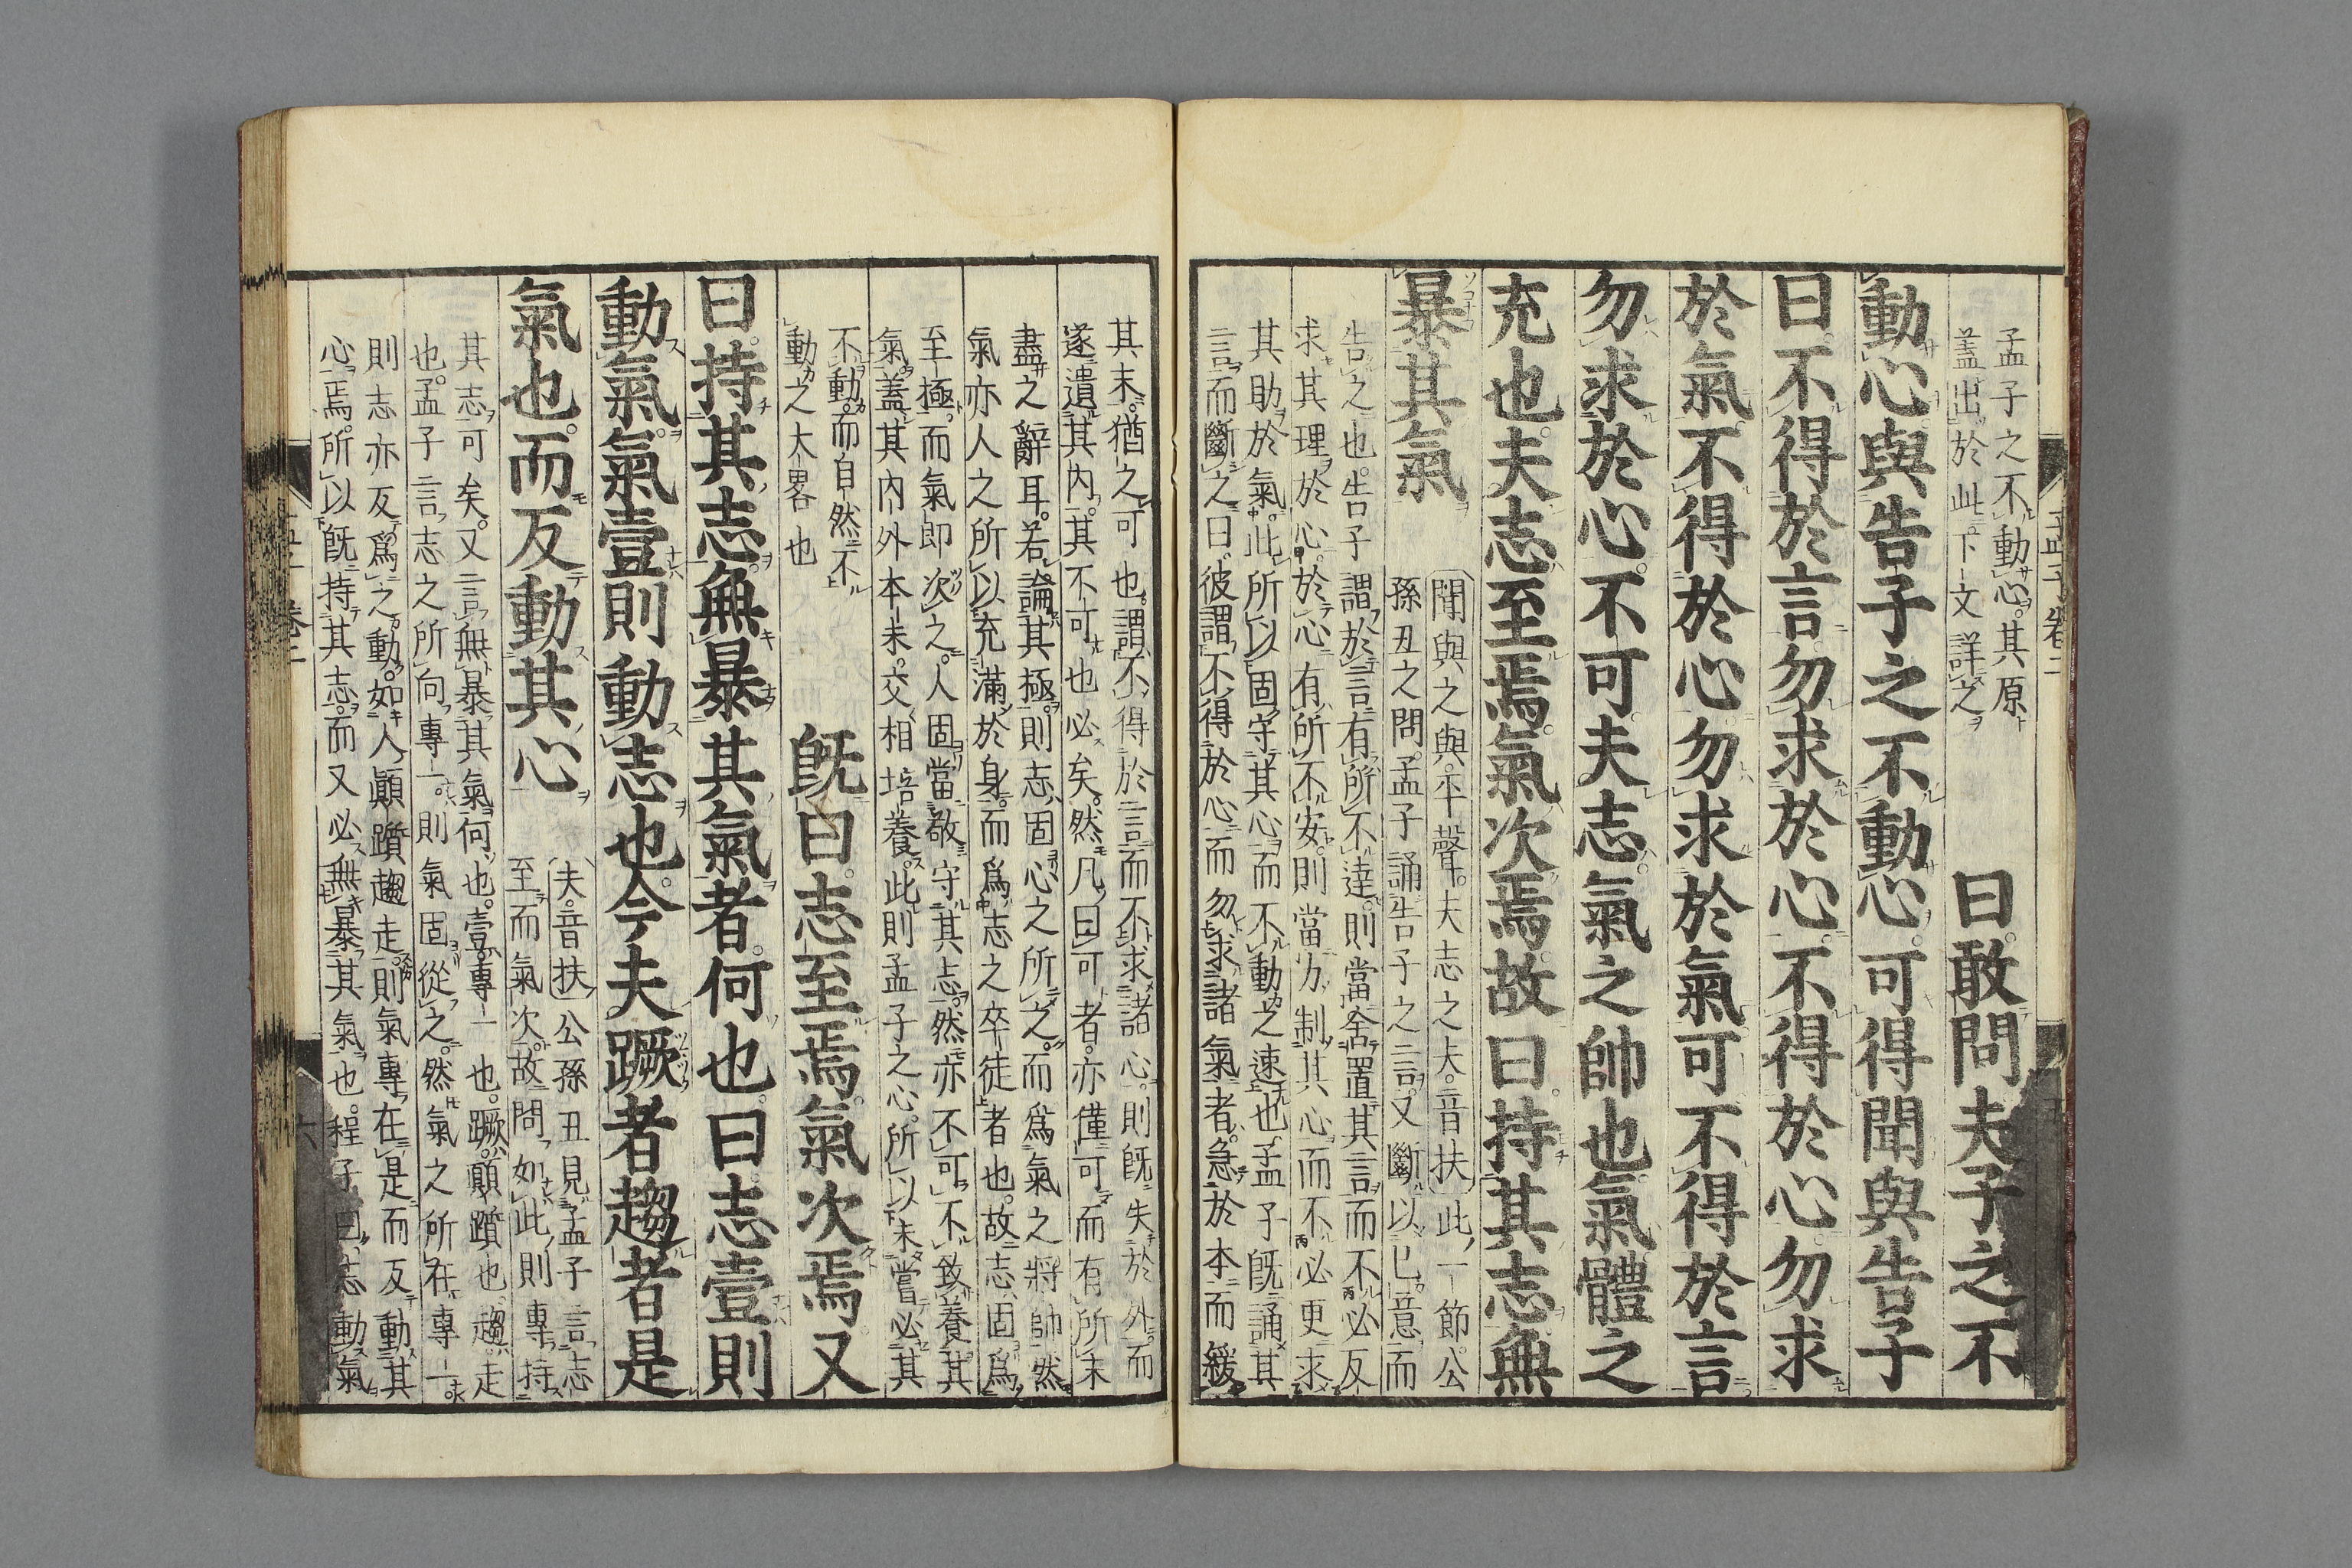 孟子之不動心。其原
蓋出於此。下文詳之
曰敢問夫子之不
動心與告子之不動心可得聞與告子
曰不得於言勿求於心不得於心勿求
於氣不得於心勿求於氣可不得於言
勿求於心不可夫志氣之帥也氣體之
充也夫志至焉氣次焉故曰持其志無
暴其氣
聞與之與。平聲。夫志之夫。音扶 此一節。公
孫丑之問。孟子誦告子之言。又斷以己意。而
告之也。告子謂於言有所不達。則當舍置其言而不必反
求其理於心。於心有所不安。則當力制其心。而不必更求
其助於氣。此所以固守其心而不動之速也。孟子既誦其
言。而斷之曰。彼謂不得於心而勿求諸氣者。急於本而緩
其末。猶之可也。謂不得於言而不求諸心。則既失於外。而
遂遺其內。其不可也必矣。然凡曰可者。亦僅可而有所未
盡之辭耳。若論其極。則志固心之所之。而爲氣之將帥然
氣亦人之所以充滿於身。而爲志之卒徒者也。故志固爲
至極。而氣即次之。人固當敬守其志。然亦不可不致養其
氣。蓋其內外本末。交相培養。此則孟子之心。所以未嘗必其
不動。而自然不
動之大畧也
既曰志至焉氣次焉又
曰持其志無暴其氣者何也曰志壹則
動氣氣壹則動志也今夫蹶者趨者是
氣也而反動其心
夫。音扶 公孫丑見孟子言志
至而氣次。故問如此則專持
其志可矣。又言無暴其氣何也。壹。專一也。蹶。顚躓也。趨。走
也。孟子言志之所向專一。則氣固從之。然氣之所在專一。
則志亦反爲之動。如人顚躓趨走。則氣專在是而反動其
心焉。所以既持其志。而又必無暴其氣也。程子曰。志動氣
孟子卷二
卷二
六